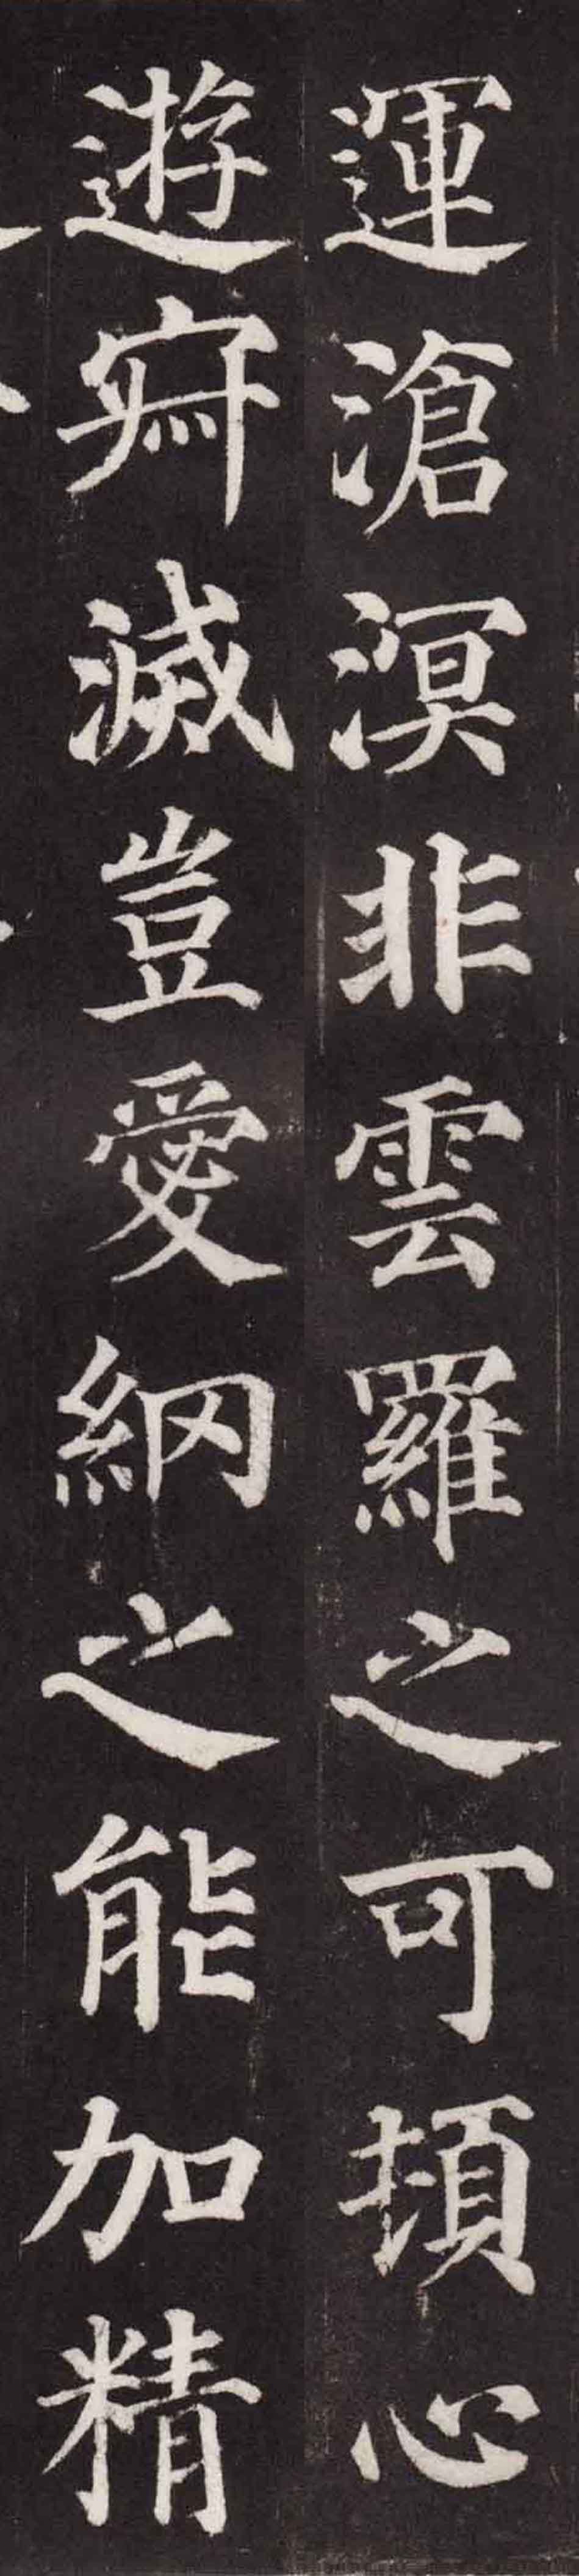 運滄溟非雲羅之可頓心
遊㝱滅豈愛網之能加精